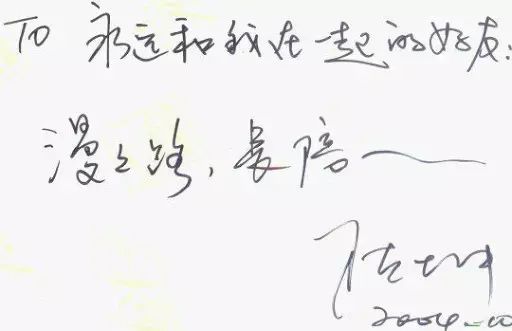 To 永远和我在一起的好友:
漫々路，長陪——
2004.10